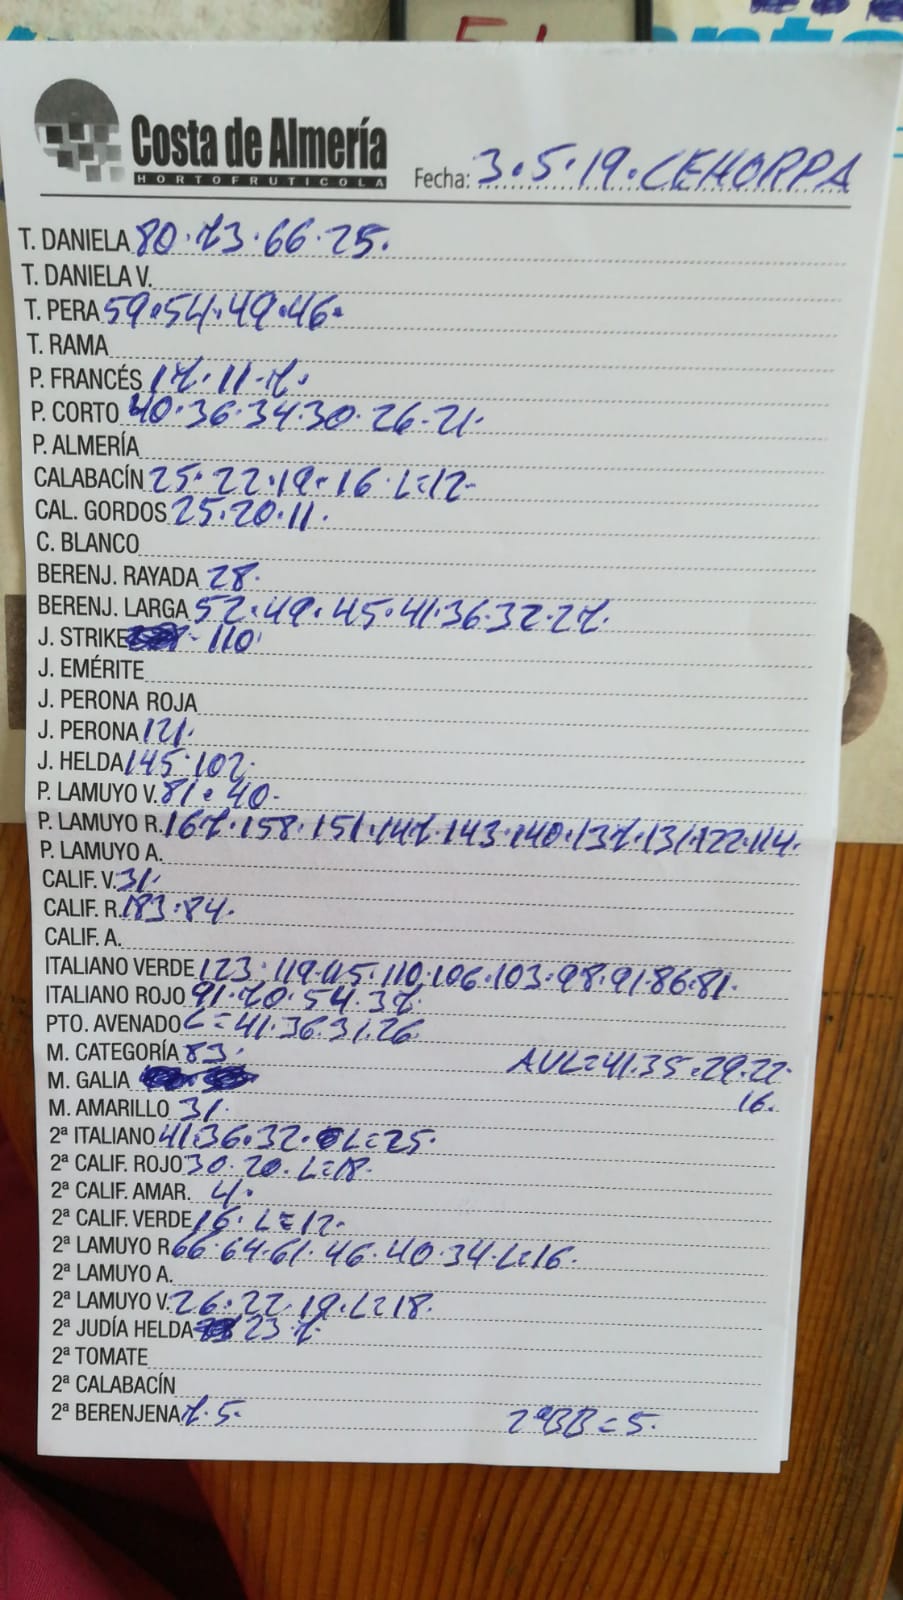 Costa de Almería
HORTOFRUTICOLA
Fecha: 3.5.19.CEHORPA
T. DANIELA 80.73.66.25.
T. DANIELA V.
T. PERA 59.54.49.46.
T. RAMA
P. FRANCÉS 17.11.7.
P. CORTO 40.36.34.30.26.21.
P. ALMERÍA
CALABACÍN 25.22.19.16.L=12-
CAL. GORDOS 25.20.11.
C. BLANCO
BERENJ. RAYADA 28.
BERENJ. LARGA 52.49.45.41.36.32.27.
J. STRIKE - 110
J. EMÉRITE
J. PERONA ROJA
J. PERONA 121.
J. HELDA 145.102.
P. LAMUYO V. 81.40.
P. LAMUYO R. 167.158.151.147.143.140.137.131.122.114.
P. LAMUYO A.
CALIF. V. 31.
CALIF. R. 183.84.
CALIF. A.
ITALIANO VERDE 123.119.115.110.106.103.98.91.86.81.
ITALIANO ROJO 91.70.54.37.
PTO. AVENADO C=41.36.31.26
M. CATEGORÍA 83. AVL=41.35.29.22.
M. GALIA 16.
M. AMARILLO 31.
2ª ITALIANO 41.36.32. L=25.
2ª CALIF. ROJO 30.20.L=18.
2ª CALIF. AMAR. 4.
2ª CALIF. VERDE 16.L=12.
2ª LAMUYO R 66.64.61.46.40.34.L=16.
2ª LAMUYO A.
2ª LAMUYO V. 26.22.19.L=18.
2ª JUDÍA HELDA 23.7.
2ª TOMATE
2ª CALABACÍN
2ª BERENJENA 7.5. 2ªBB=5.